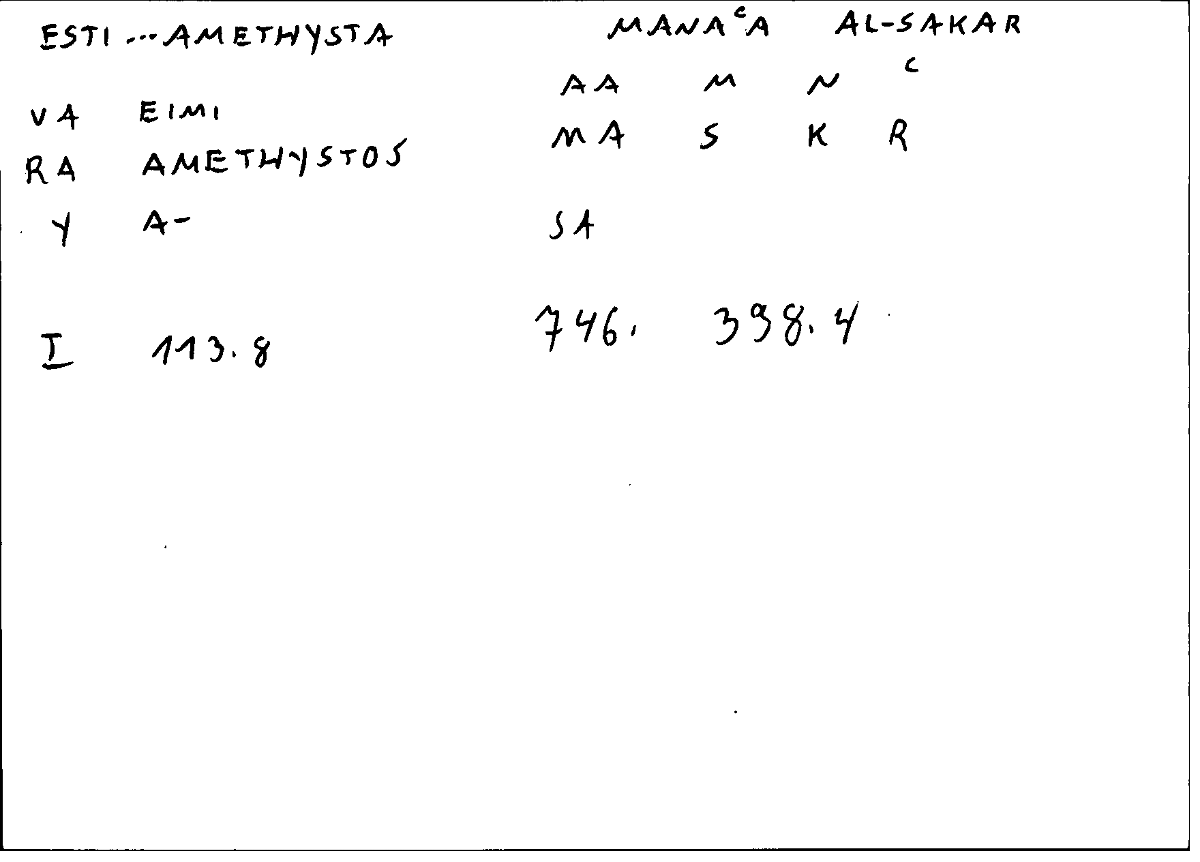 ESTI ... AMETHYSTA MANAᶜA AL-SAKAR
AA M N ᶜ
VA EIMI
MA S K R
RA AMETHYSTOS
Y A- SA
I 113.8 746. 398.4